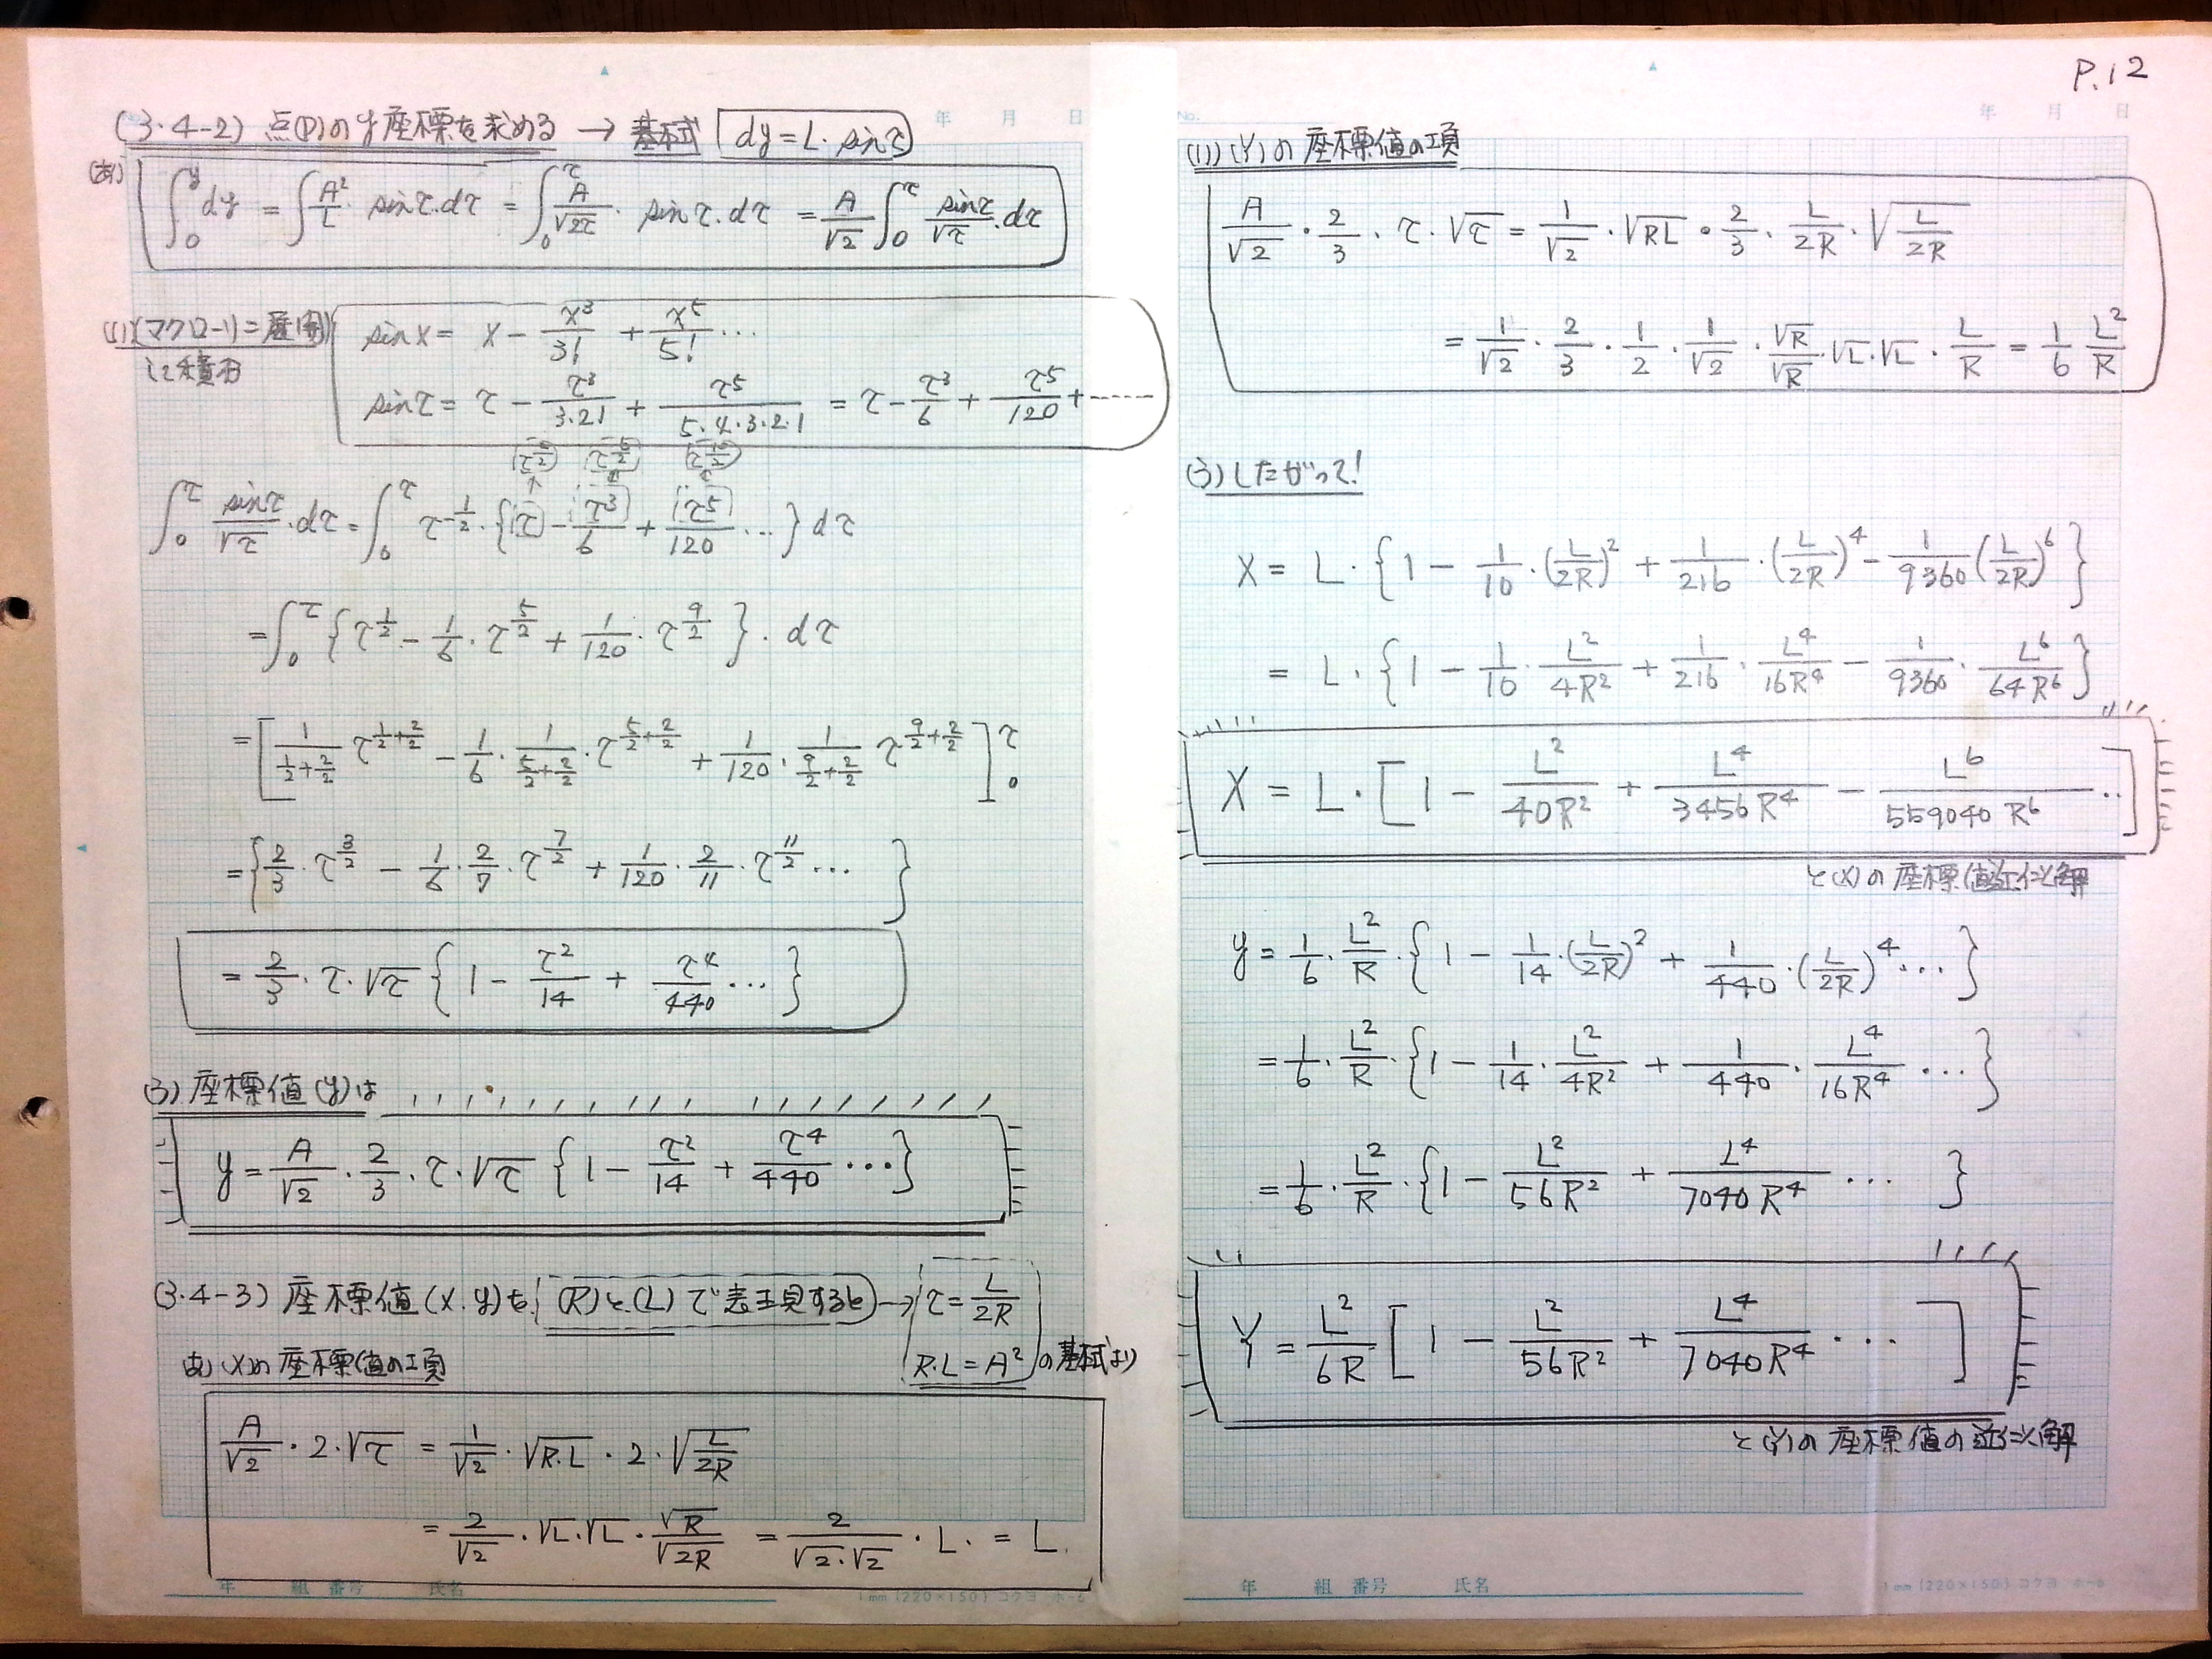 P.12
(3・4-2) 点(P)の y 座標を求める → 基本式 dy = L・sinτ
(あ)
∫₀^y dy = ∫ A²/L・sinτ・dτ = ∫₀^τ A/√2τ・sinτ・dτ = A/√2 ∫₀^τ sinτ/√τ・dτ
(い)(マクローリン展開)
して積分
sinx = x - x³/3! + x⁵/5! ・・・
sinτ = τ - τ³/3・2・1 + τ⁵/5・4・3・2・1 = τ - τ³/6 + τ⁵/120 + ------
∫₀^τ sinτ/√τ・dτ = ∫₀^τ τ^(-1/2)・{(τ) - (τ³)/6 + (τ⁵)/120 ・・・} dτ
= ∫₀^τ {τ^(1/2) - 1/6・τ^(5/2) + 1/120・τ^(9/2)}・dτ
= [1/(1/2+2/2) τ^(1/2+2/2) - 1/6・1/(5/2+2/2)・τ^(5/2+2/2) + 1/120・1/(9/2+2/2) τ^(9/2+2/2)]₀^τ
= {2/3・τ^(3/2) - 1/6・2/7・τ^(7/2) + 1/120・2/11・τ^(11/2) ・・・}
= 2/3・τ・√τ {1 - τ²/14 + τ⁴/440 ・・・}
(う) 座標値(y)は
y = A/√2・2/3・τ・√τ {1 - τ²/14 + τ⁴/440 ・・・}
(3・4-3) 座標値(X.y)を (R)と(L)で表現すると → τ = L/2R
R・L = A² の基本式より
あ) (X)の座標値の項
A/√2・2・√τ = 1/√2・√R.L・2・√(L/2R)
= 2/√2・√L・√L・√R/√2R = 2/√2・√2・L. = L.
年 組 番号 氏名
1mm (220×150) コクヨ ホ-6
年 月 日
No. 年 月 日
(い) (Y)の座標値の項
A/√2・2/3・τ・√τ = 1/√2・√RL・2/3・L/2R・√(L/2R)
= 1/√2・2/3・1/2・1/√2・√R/√R・√L・√L・L/R = 1/6 L²/R
(う) したがって!
X = L・{1 - 1/10・(L/2R)² + 1/216・(L/2R)⁴ - 1/9360 (L/2R)⁶}
= L・{1 - 1/10・L²/4R² + 1/216・L⁴/16R⁴ - 1/9360・L⁶/64R⁶}
X = L・[1 - L²/40R² + L⁴/3456R⁴ - L⁶/559040R⁶ ・・]
と(X)の座標値近似解
y = 1/6・L²/R・{1 - 1/14・(L/2R)² + 1/440・(L/2R)⁴ ・・・}
= 1/6・L²/R・{1 - 1/14・L²/4R² + 1/440・L⁴/16R⁴ ・・・}
= 1/6・L²/R・{1 - L²/56R² + L⁴/7040R⁴ ・・・}
Y = L²/6R [1 - L²/56R² + L⁴/7040R⁴ ・・・]
と(Y)の座標値の近似解
年 組 番号 氏名
1mm (220×150) コクヨ ホ-6